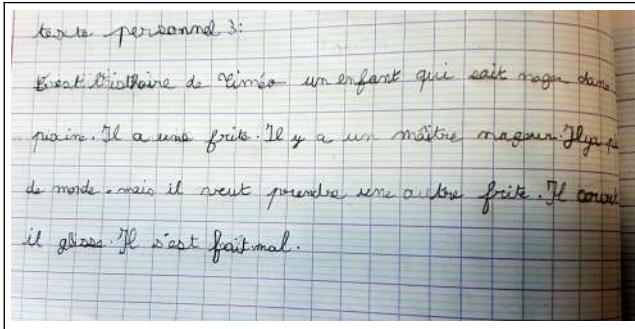 texte personnel 3:
C'est l'istoire de Timéo un enfant qui sait nager dans
piscine. Il a une frite. Il y a un maître nageur. Il y a
de monde. mais il veut prendre une autre frite. Il court
il glisse. Il s'est fait mal.